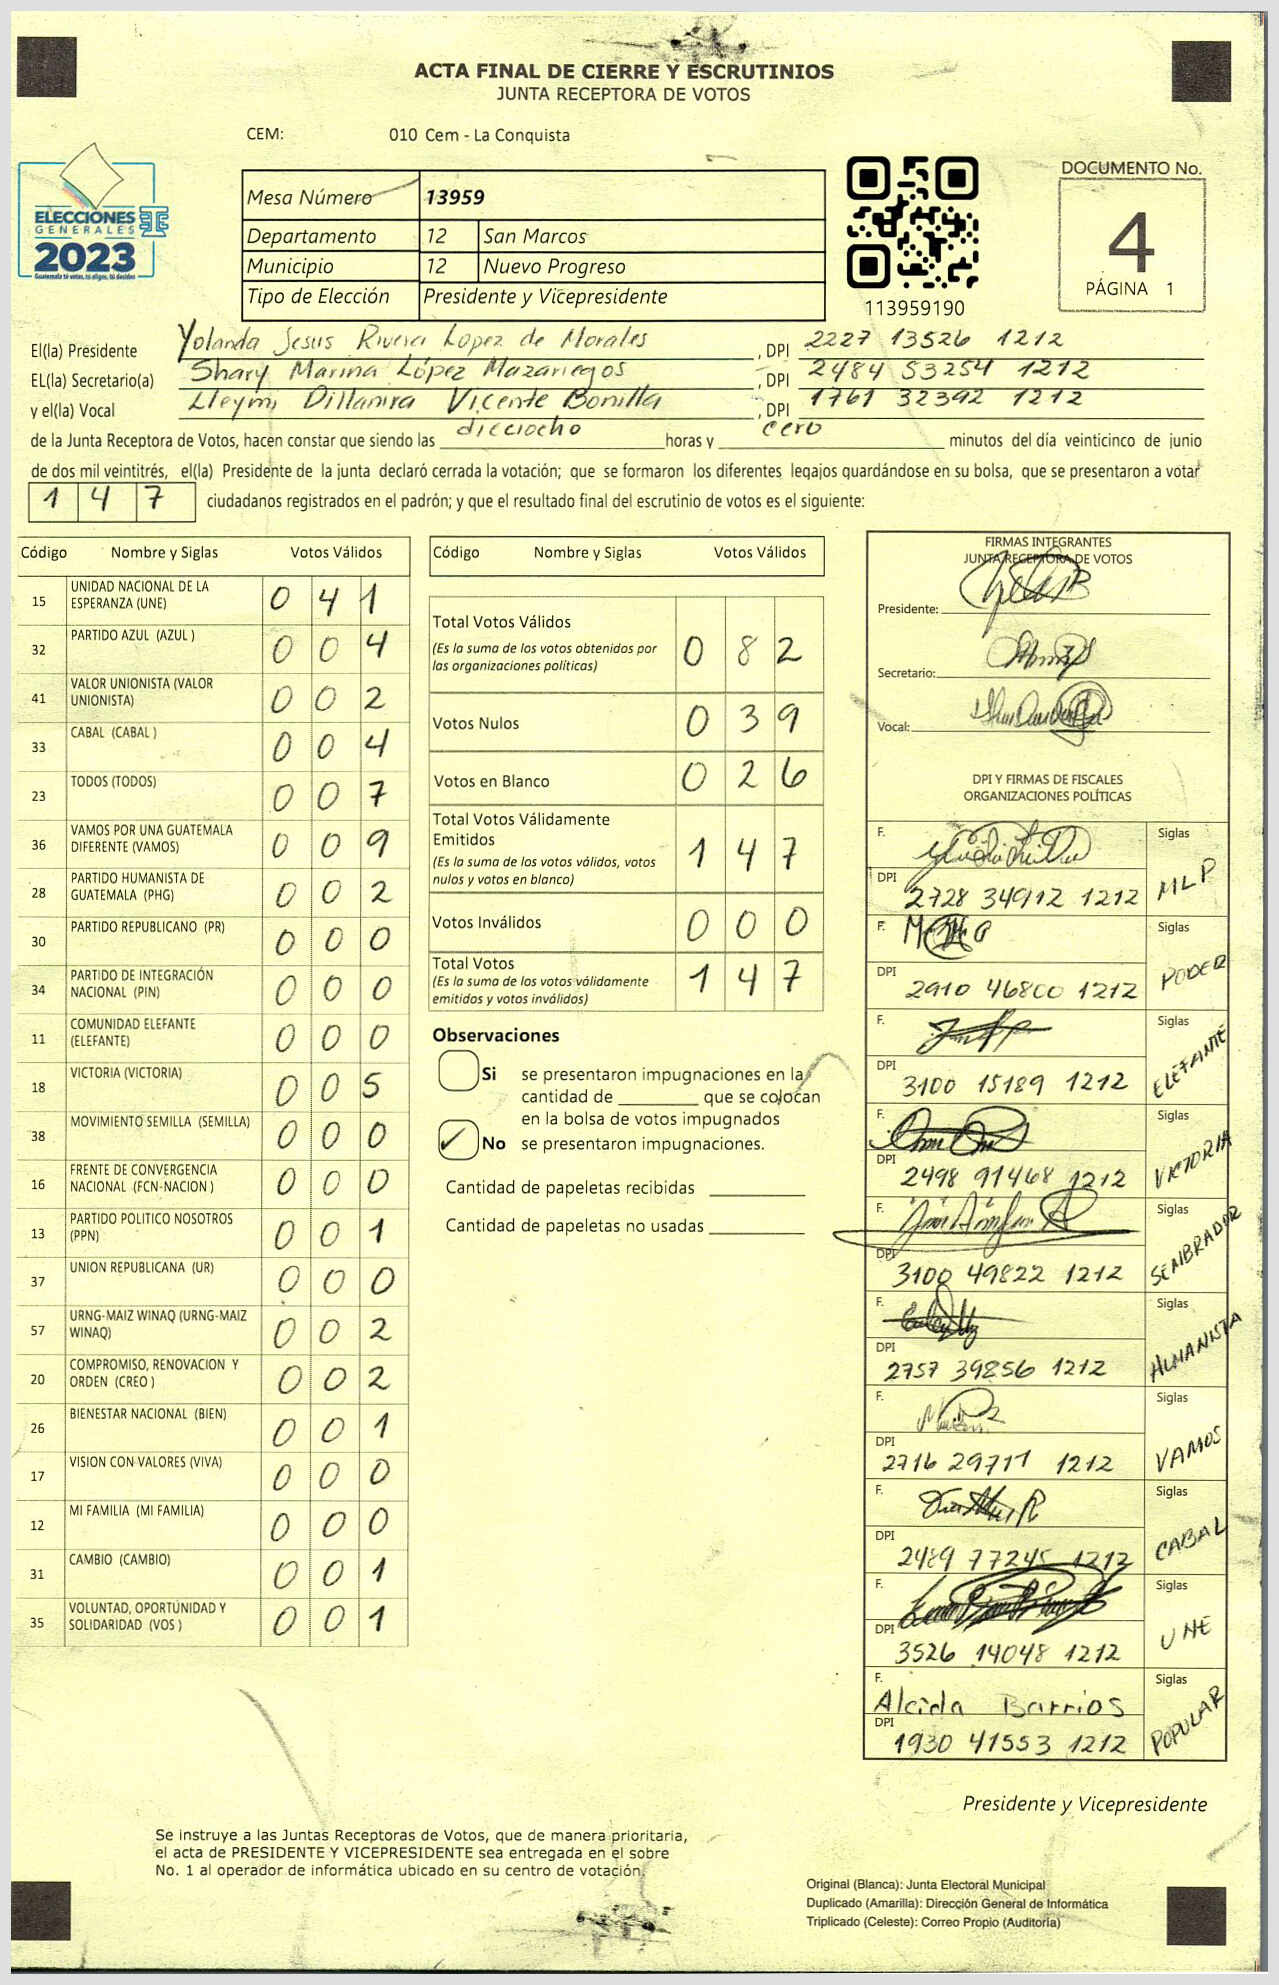 ACTA FINAL DE CIERRE Y ESCRUTINIOS
JUNTA RECEPTORA DE VOTOS
CEM: 010 Cem - La Conquista
ELECCIONES
GENERALES
2023
Guatemala tú votas, tú eliges, tú decides
Mesa Número 13959
Departamento 12 San Marcos
Municipio 12 Nuevo Progreso
Tipo de Elección Presidente y Vicepresidente
113959190
DOCUMENTO No.
4
PÁGINA 1
El(la) Presidente Yolanda Jesus Rivera Lopez de Morales, DPI 2227 13526 1212
EL(la) Secretario(a) Shary Marina López Mazariegos, DPI 2484 53254 1212
y el(la) Vocal Vicente Bonilla, DPI 1761 32392 1212
de la Junta Receptora de Votos, hacen constar que siendo las dieciocho horas y cero minutos del día veinticinco de junio
de dos mil veintitrés, el(la) Presidente de la junta declaró cerrada la votación; que se formaron los diferentes legajos quardándose en su bolsa, que se presentaron a votar
147 ciudadanos registrados en el padrón; y que el resultado final del escrutinio de votos es el siguiente:
Código Nombre y Siglas Votos Válidos
15 UNIDAD NACIONAL DE LA ESPERANZA (UNE) 041
32 PARTIDO AZUL (AZUL ) 004
41 VALOR UNIONISTA (VALOR UNIONISTA) 002
33 CABAL (CABAL ) 004
23 TODOS (TODOS) 007
36 VAMOS POR UNA GUATEMALA DIFERENTE (VAMOS) 009
28 PARTIDO HUMANISTA DE GUATEMALA (PHG) 002
30 PARTIDO REPUBLICANO (PR) 000
34 PARTIDO DE INTEGRACIÓN NACIONAL (PIN) 000
11 COMUNIDAD ELEFANTE (ELEFANTE) 000
18 VICTORIA (VICTORIA) 005
38 MOVIMIENTO SEMILLA (SEMILLA) 000
16 FRENTE DE CONVERGENCIA NACIONAL (FCN-NACION ) 000
13 PARTIDO POLITICO NOSOTROS (PPN) 001
37 UNION REPUBLICANA (UR) 000
57 URNG-MAIZ WINAQ (URNG-MAIZ WINAQ) 002
20 COMPROMISO, RENOVACION Y ORDEN (CREO ) 002
26 BIENESTAR NACIONAL (BIEN) 001
17 VISION CON VALORES (VIVA) 000
12 MI FAMILIA (MI FAMILIA) 000
31 CAMBIO (CAMBIO) 001
35 VOLUNTAD, OPORTUNIDAD Y SOLIDARIDAD (VOS ) 001
Código Nombre y Siglas Votos Válidos
Total Votos Válidos 082
(Es la suma de los votos obtenidos por
las organizaciones politicas)
Votos Nulos 039
Votos en Blanco 026
Total Votos Válidamente
Emitidos 147
(Es la suma de los votos válidos, votos
nulos y votos en blanco)
Votos Inválidos 000
Total Votos 147
(Es la suma de los votos válidamente
emitidos y votos inválidos)
Observaciones
Si se presentaron impugnaciones en la
cantidad de ________ que se colocan
en la bolsa de votos impugnados
✓ No se presentaron impugnaciones.
Cantidad de papeletas recibidas
Cantidad de papeletas no usadas
FIRMAS INTEGRANTES
JUNTA RECEPTORA DE VOTOS
Presidente:
Secretario:
Vocal:
DPI Y FIRMAS DE FISCALES
ORGANIZACIONES POLÍTICAS
F. Siglas MLP
DPI 2728 34912 1212
F. Siglas PODER
DPI 2910 46800 1212
F. Siglas ELEFANTE
DPI 3100 15189 1212
F. Siglas VICTORIA
DPI 2498 91468 1212
F. Siglas SEMBRADOR
DPI 3100 49822 1212
F. Siglas HUMANISTA
DPI 2757 39856 1212
F. Siglas VAMOS
DPI 2716 29711 1212
F. Siglas CABAL
DPI 2489 77245 1212
F. Siglas UNE
DPI 3526 14048 1212
F. Alcida Barrios Siglas POPULAR
DPI 1930 41553 1212
Presidente y Vicepresidente
Se instruye a las Juntas Receptoras de Votos, que de manera prioritaria,
el acta de PRESIDENTE Y VICEPRESIDENTE sea entregada en el sobre
No. 1 al operador de informática ubicado en su centro de votación.
Original (Blanca): Junta Electoral Municipal
Duplicado (Amarilla): Dirección General de Informática
Triplicado (Celeste): Correo Propio (Auditoría)